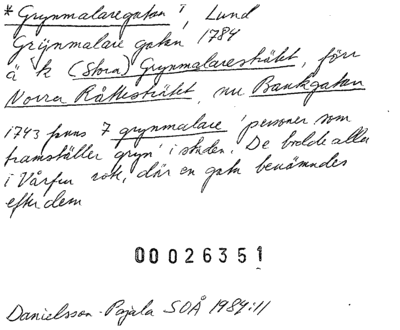 *Grynmalaregatan i, Lund
Grÿnmalare gatan 1784
ä k (Stora) Grynmalaresträtet, förr
Norra Råttesträtet, nu Bankgatan
1743 fanns 7 grynmalare 'personer som
framställer gryn' i staden. De bodde alla
i Vårfru rote, där en gata benämndes
efter dem
00026351
Danielsson-Pajala SOÅ 1984:11